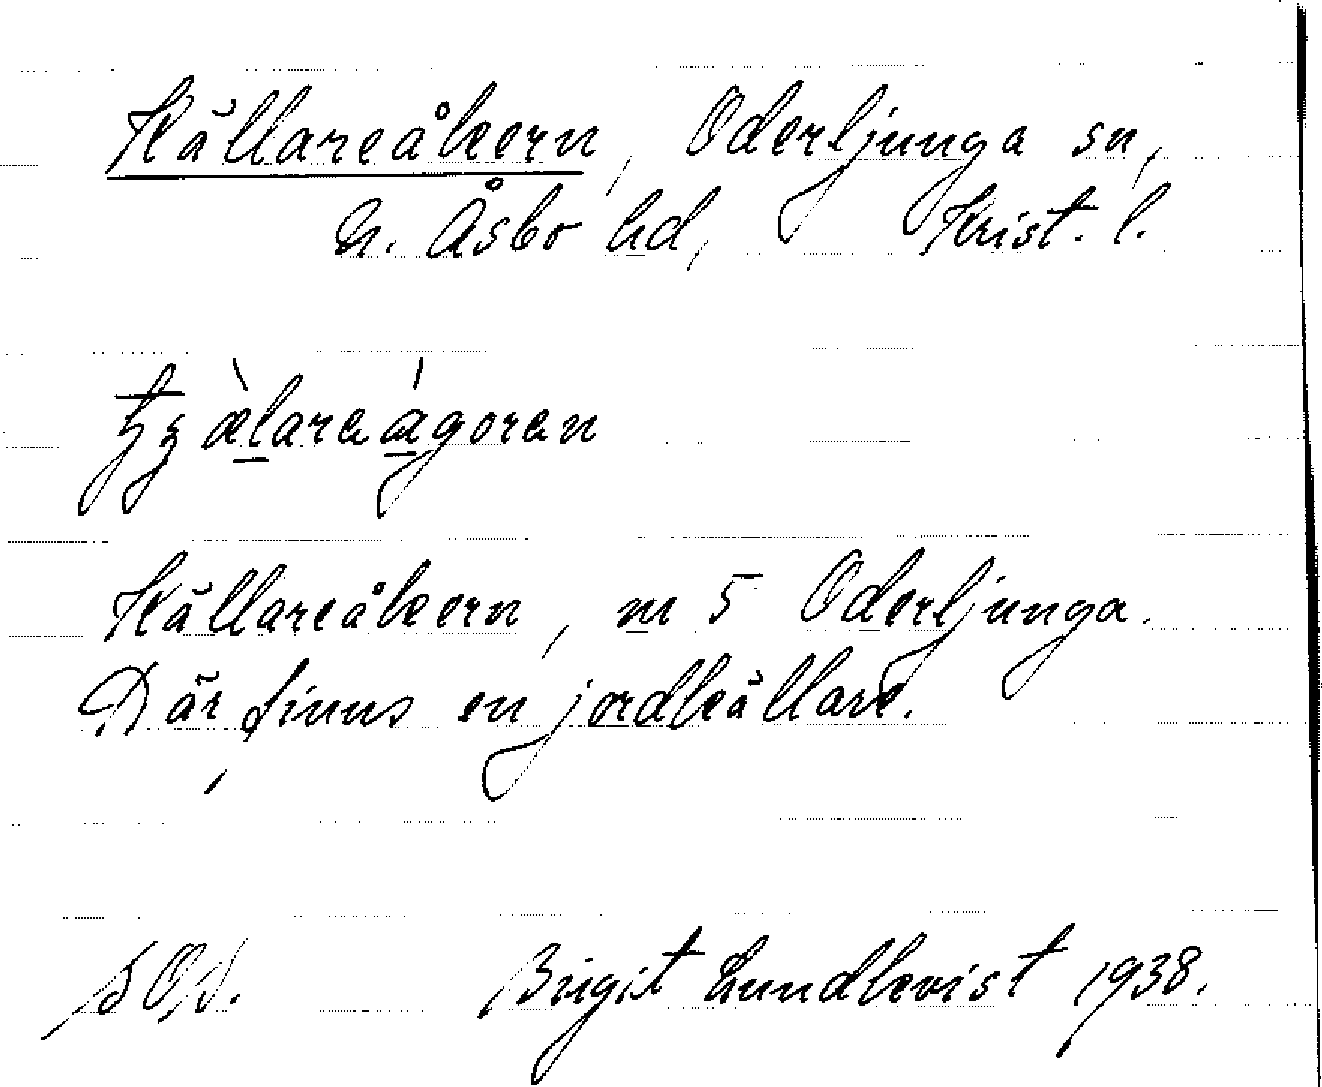 Källareåkern, Oderljunga sn,
N. Åsbo hd, Krist. l.
Källareåkern, m 5 Oderljunga.
Där finns en jordkällare.
Birgit Lundkvist 1938.